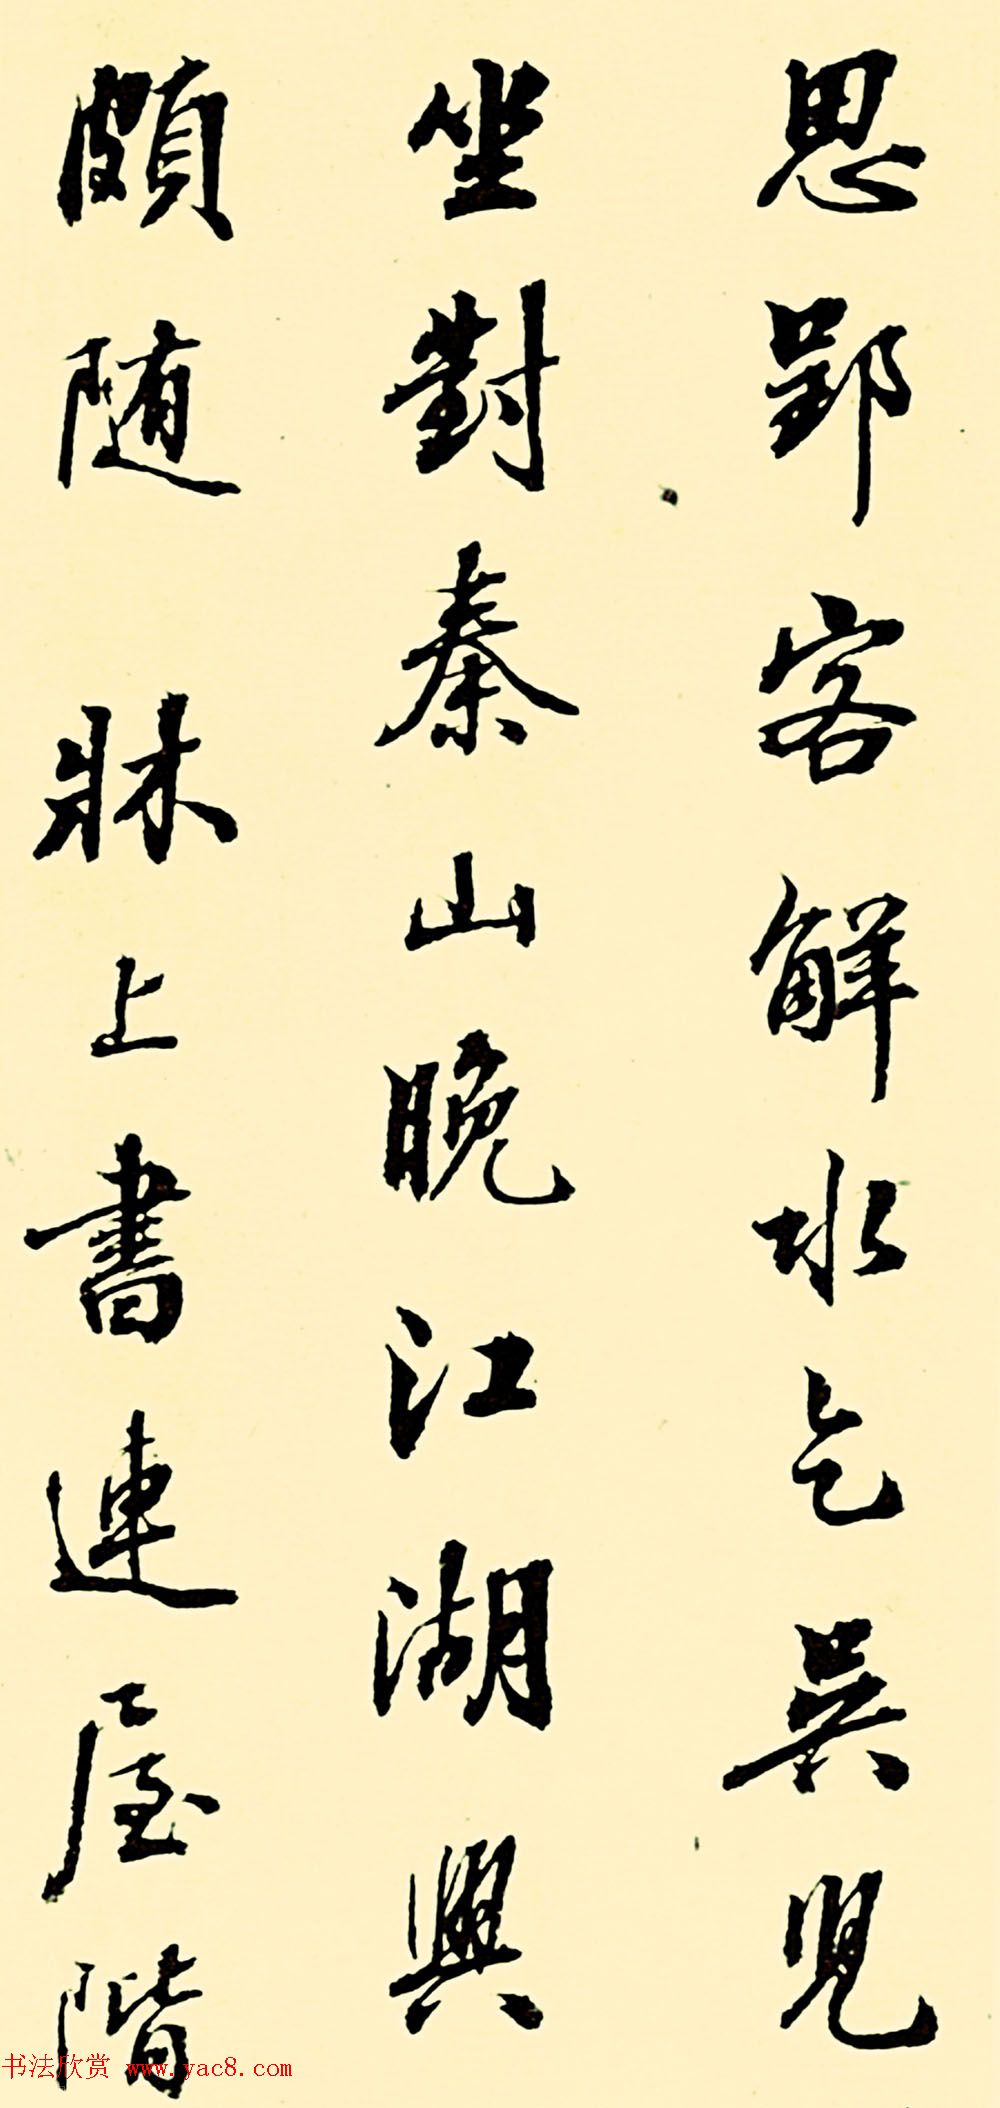 思郢客解水乞吳兒
坐對秦山晚江湖興
頗随牀上書連屋階
书法欣赏 www.yac8.com